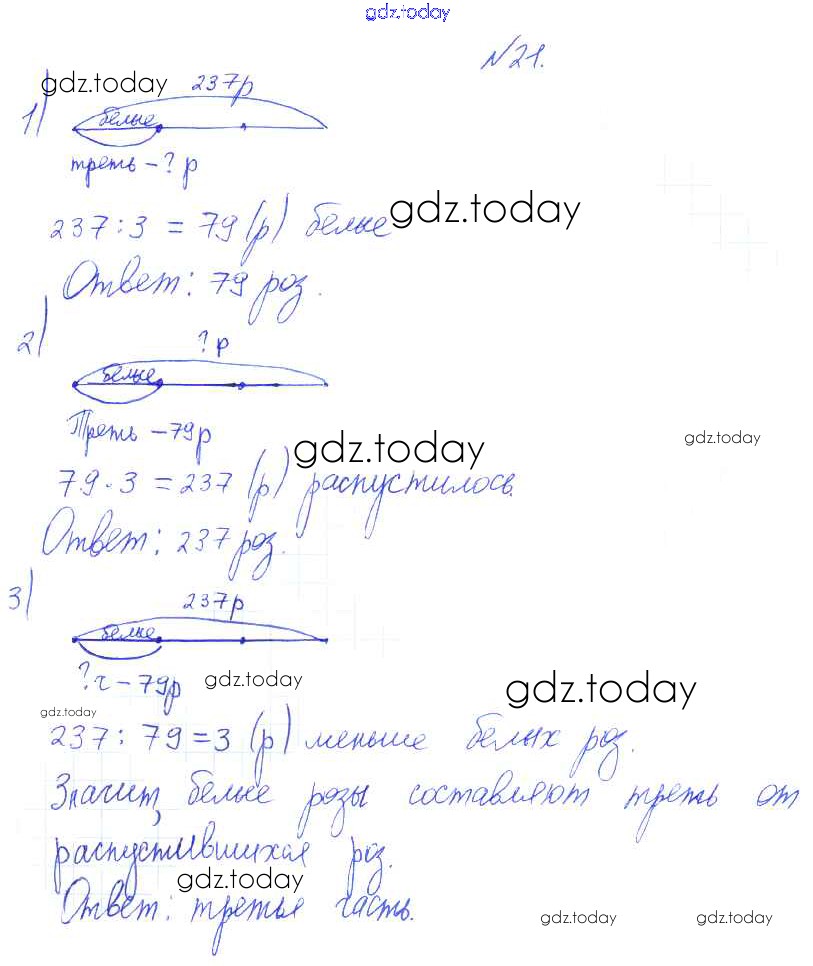 gdz.today
№21.
gdz.today
1) 237р
белые
треть - ? р
237 : 3 = 79 (р) белые
gdz.today
Ответ: 79 роз.
2) ? р
белые
Треть - 79р
gdz.today
gdz.today
79 · 3 = 237 (р) распустилось.
Ответ: 237 роз.
3) 237р
белые
? ч - 79р
gdz.today
gdz.today
gdz.today
237 : 79 = 3 (р) меньше белых роз.
Значит, белые розы составляют треть от
распустившихся роз.
gdz.today
Ответ: третья часть.
gdz.today
gdz.today